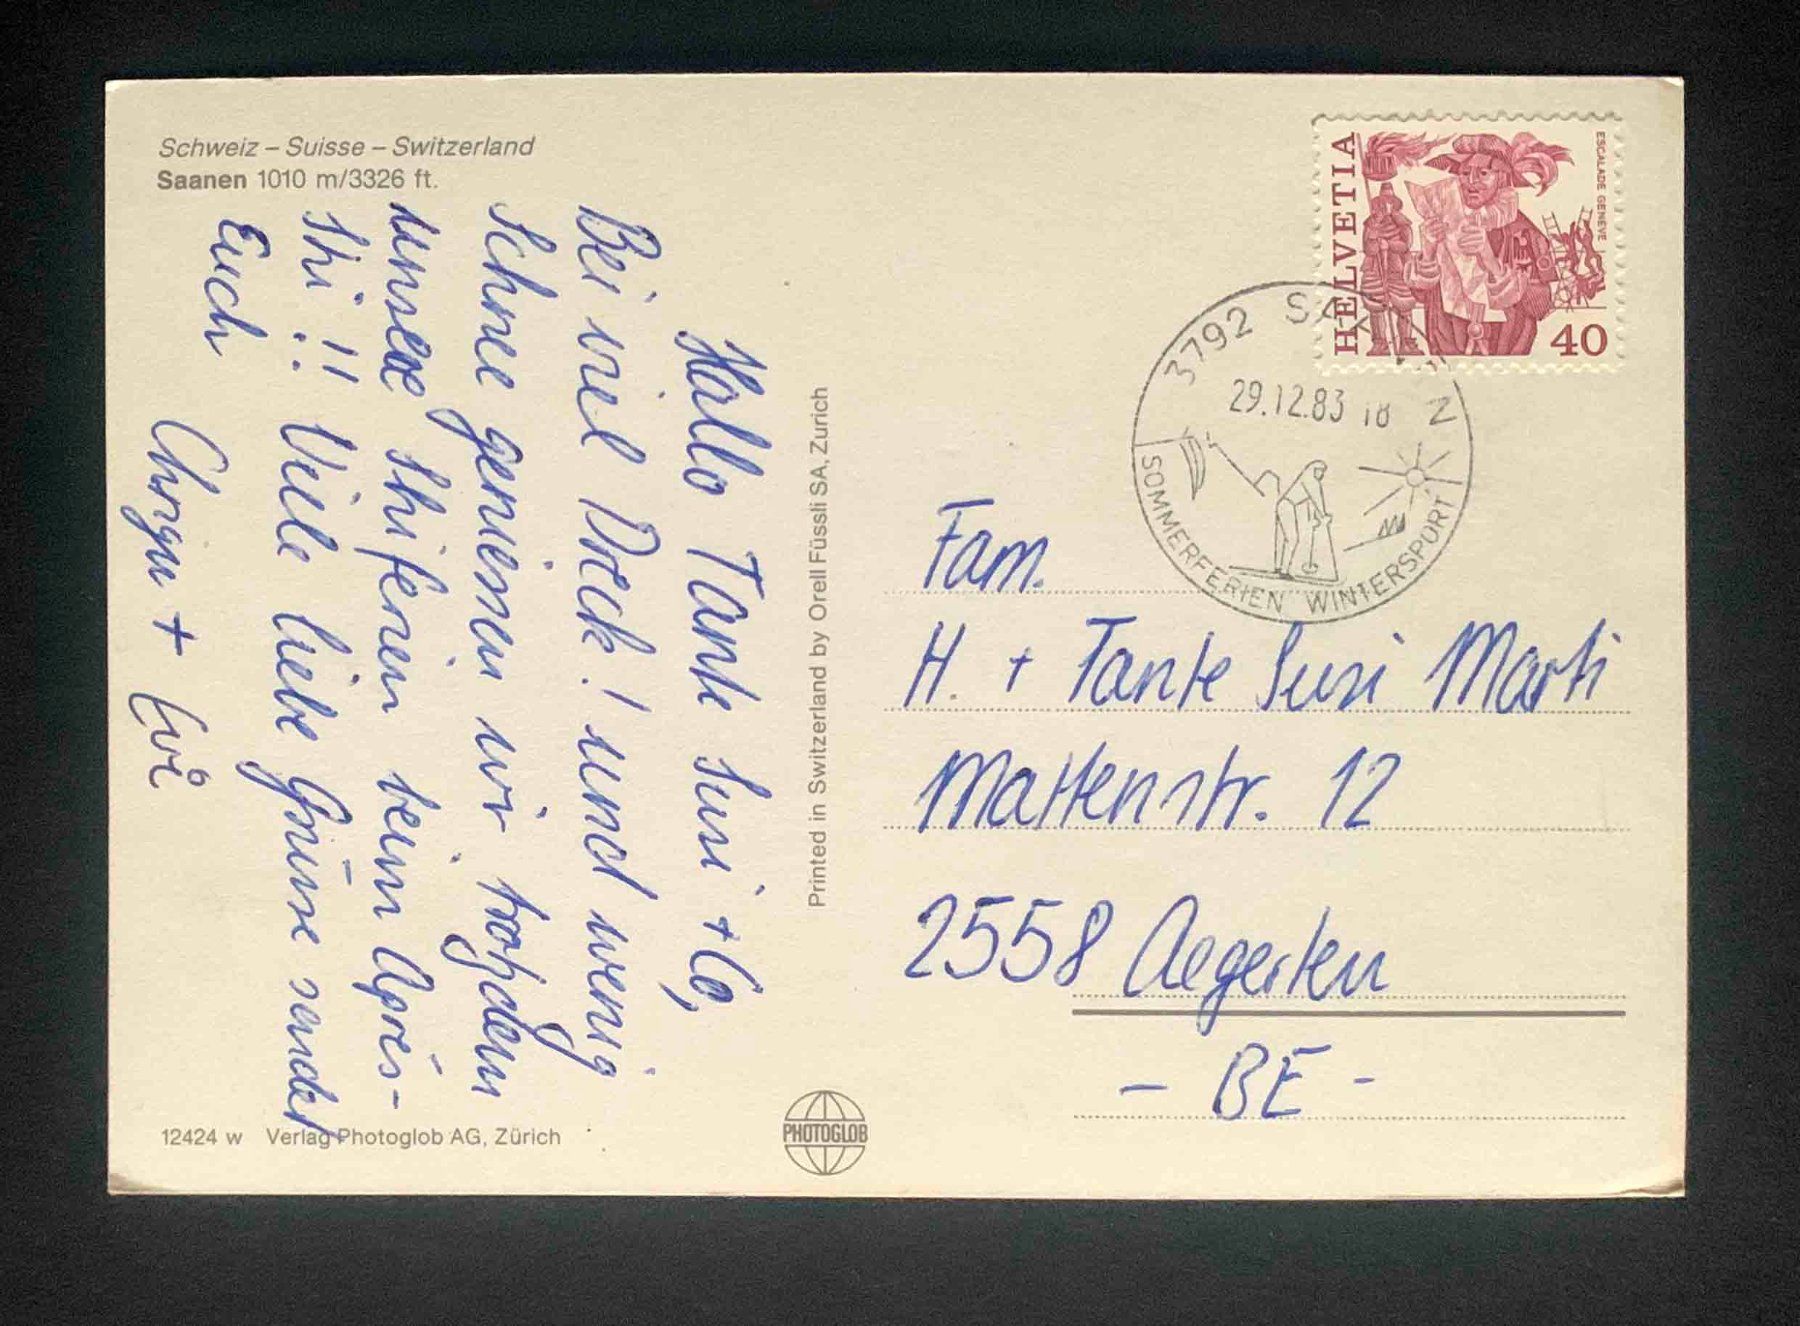 Schweiz – Suisse – Switzerland
Saanen 1010 m/3326 ft.
Hallo Tante Susi + Co,
Bei viel Dreck! und wenig
Schnee geniessen wir trotzdem
unsere Skiferien beim Après-
Ski!! Viele liebe Grüsse sendet
Euch
+ Evi
12424 w Verlag Photoglob AG, Zürich
Printed in Switzerland by Orell Füssli SA, Zurich
PHOTOGLOB
HELVETIA
ESCALADE GENEVE
40
3792 SAANEN
29.12.83 18
SOMMERFERIEN WINTERSPORT
Fam.
H. + Tante Susi Marti
Mattenstr. 12
2558 Aegerten
- BE -